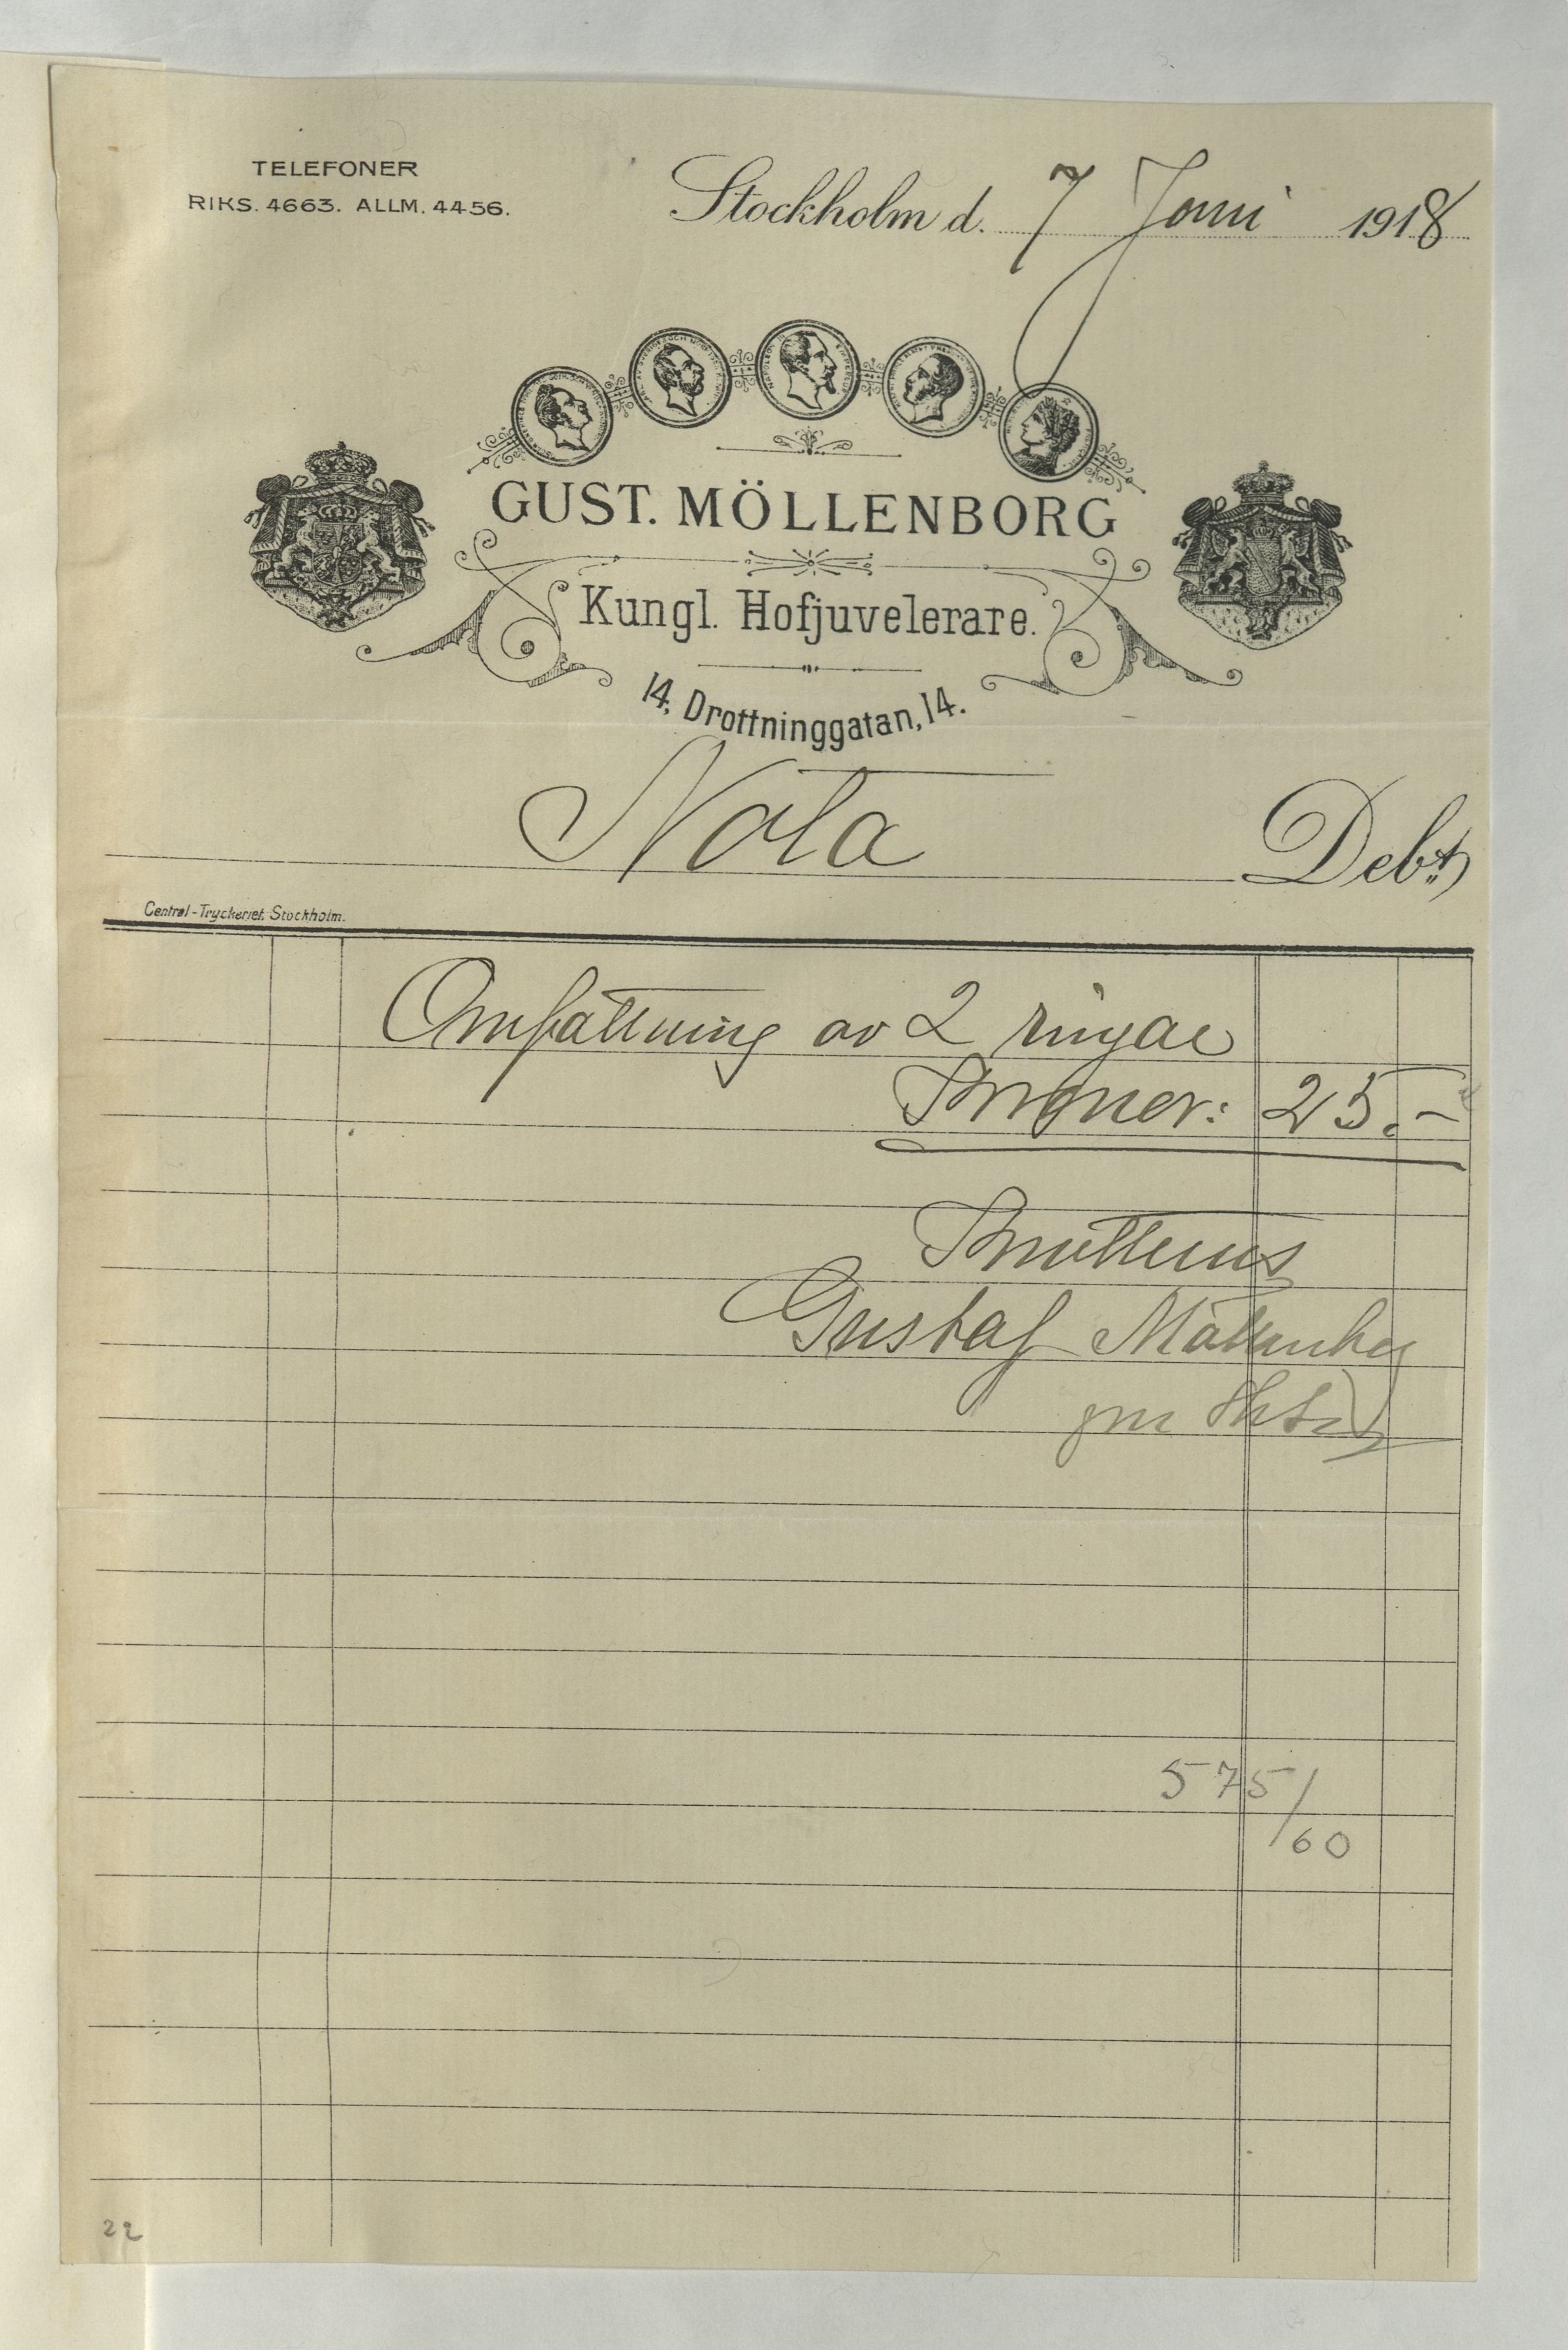 TELEFONER
RIKS. 4663. ALLM. 4456.
Stockholm d. 7 Juni 1918
GUST. MÖLLENBORG
Kungl. Hofjuvelerare.
14, Drottninggatan, 14.
Nota Debt.
Central-Tryckeriet. Stockholm.
Omfattning av 2 ringar
Kronor: 25.-
Kvitteras
Gustaf Möllenborg
575/60
22